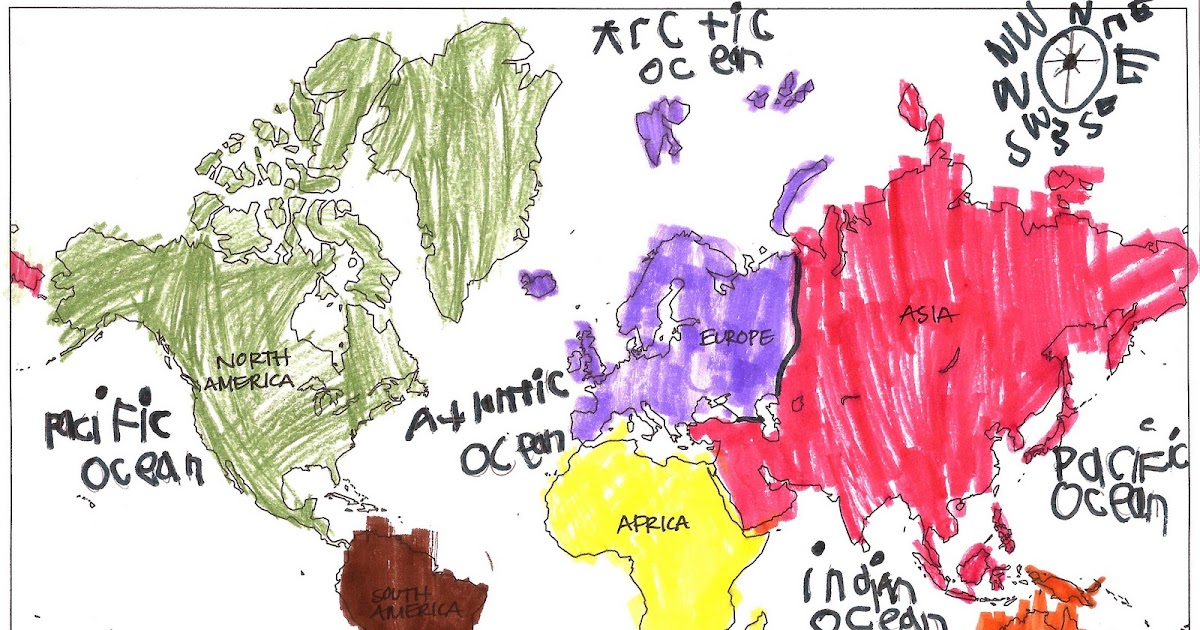 Arctic
ocean
NW N NE
W E
SW S SE
EUROPE
ASIA
NORTH
AMERICA
Pacific
ocean
Atlantic
ocean
Pacific
ocean
AFRICA
indian
ocean
SOUTH
AMERICA